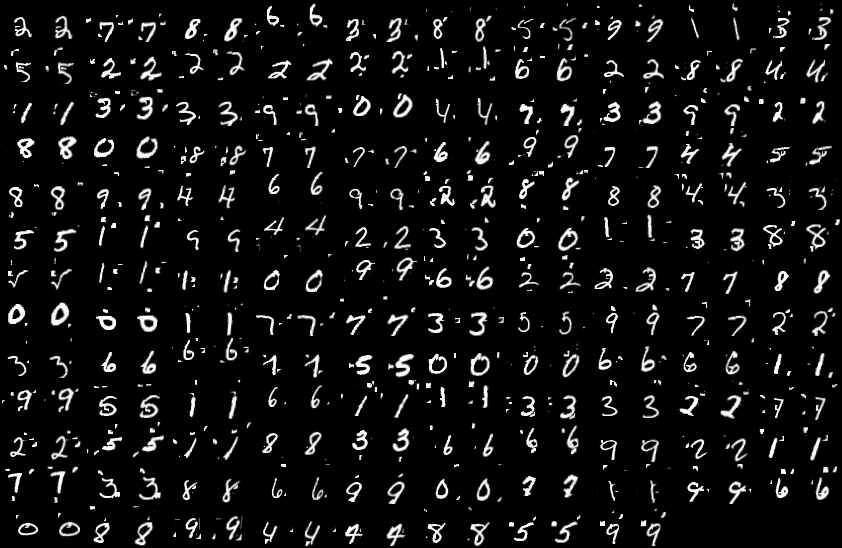 2 2 7 7 8 8 6 6 3 3 8 8 5 5 9 9 1 1 3 3
5 5 2 2 2 2 2 2 2 2 1 1 6 6 2 2 8 8 4 4
1 1 3 3 3 3 9 9 0 0 4 4 7 7 3 3 9 9 2 2
8 8 0 0 8 8 7 7 7 7 6 6 9 9 7 7 4 4 5 5
8 8 9 9 4 4 6 6 9 9 2 2 8 8 8 8 4 4 3 3
5 5 1 1 9 9 4 4 2 2 3 3 0 0 1 1 3 3 8 8
1 1 0 0 9 9 6 6 2 2 2 2 7 7 8 8
0 0 0 0 1 1 7 7 7 7 3 3 5 5 9 9 7 7 2 2
3 3 6 6 6 6 1 1 5 5 0 0 0 0 6 6 6 6 1 1
9 9 5 5 1 1 6 6 1 1 1 1 3 3 3 3 2 2 7 7
2 2 5 5 1 1 8 8 3 3 6 6 6 6 9 9 2 2 1 1
7 7 3 3 8 8 6 6 9 9 0 0 7 7 1 1 9 9 6 6
0 0 8 8 9 9 4 4 4 4 8 8 5 5 9 9